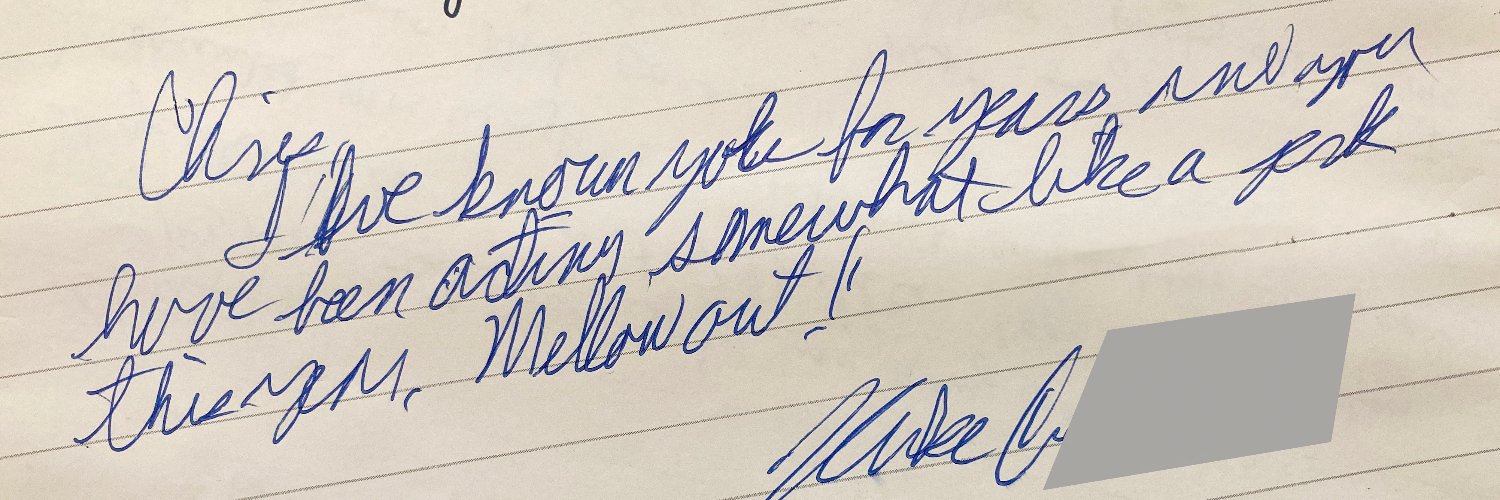 Chris,
I've known you for years and you
have been acting somewhat like a jerk
this year. Mellow out!!
Mike